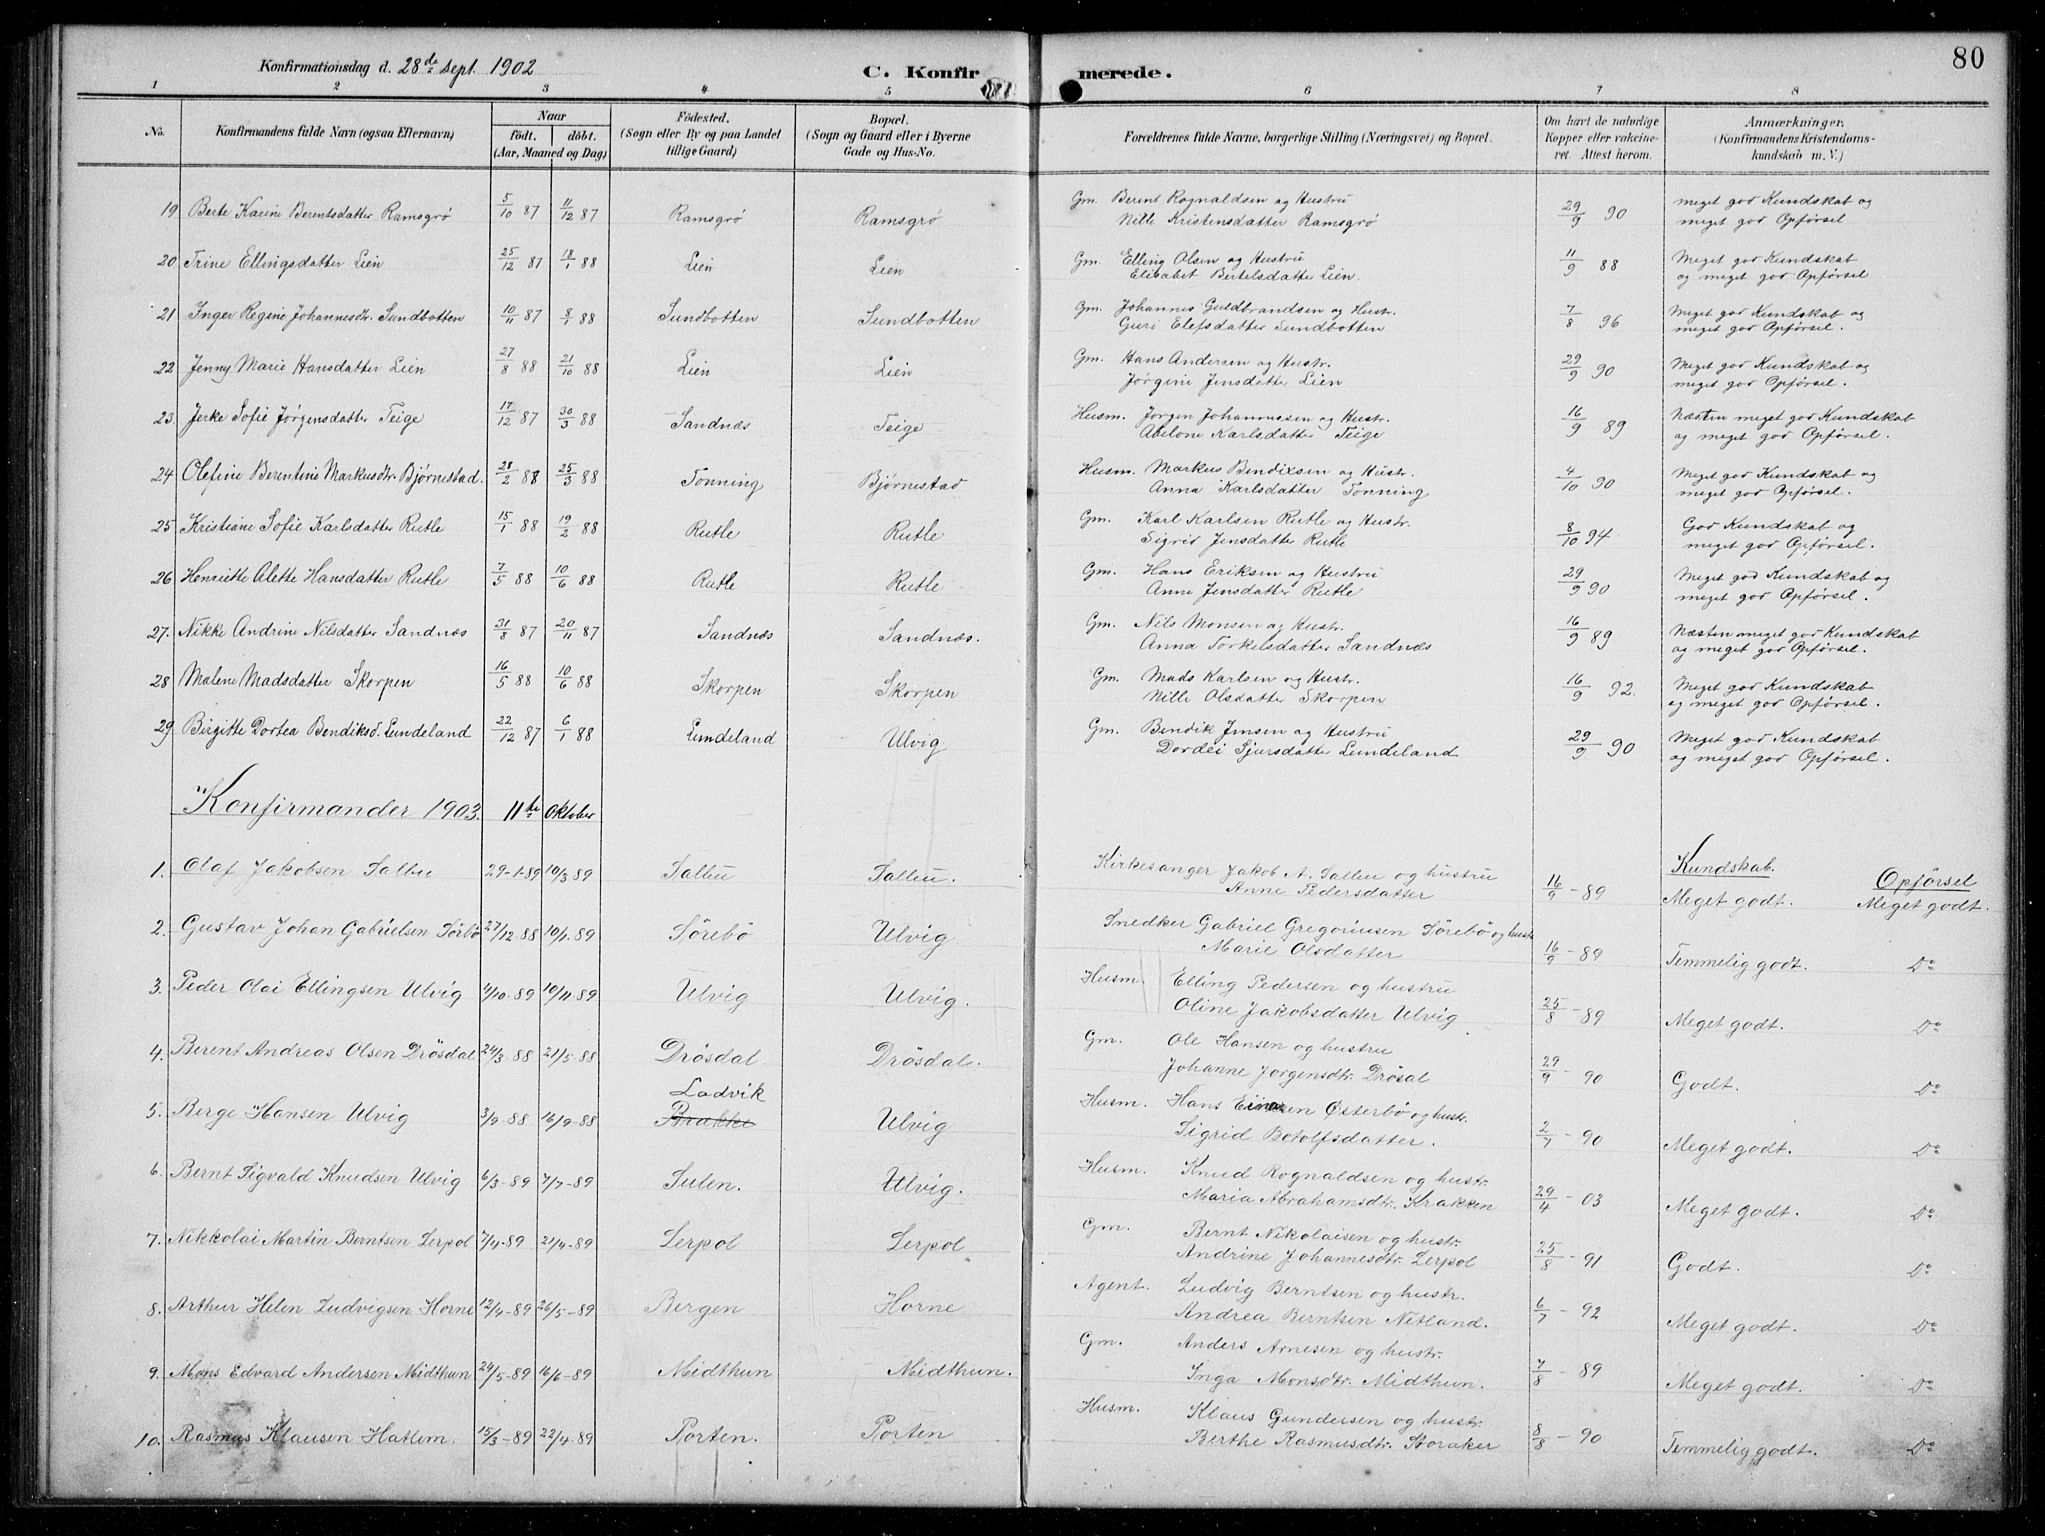 80
Konfirmationsdag d. 28de sept. 1902
C. Konfirmerede.
1 2 3 4 5 6 7 8
No. Konfirmandens fulde Navn (ogsaa Efternavn) Naar födt. döbt. (Aar, Maaned og Dag) Födested. (Sogn eller By og paa Landet tillige Gaard) Bopæl. (Sogn og Gaard eller i Byerne Gade og Hus-No. Forældrenes fulde Navne, borgerlige Stilling (Næringsvei) og Bopæl. Om havt de naturlige Kopper eller vakcineret. Attest herom. Anmærkninger. (Konfirmandens Kristendomskundskab m. V.)
19 Berte Karine Berentsdatter Ramsgrø 5/10 87 11/12 87 Ramsgrø Ramsgrø Gm. Bernt Rognaldsen og Hustru 29/9 90 meget god Kundskab og
Nille Kristensdatter Ramsgrø meget god Opførsel
20 Trine Ellingsdatter Lien 25/12 87 18/1 88 Lien Lien Gm. Elling Olsen og Hustru 11/9 88 Meget god Kundskab
Elisabet Bertelsdatter Lien. og meget god Opførsel
21 Inger Regine Johannesdtr. Sundbotten 10/11 87 8/1 88 Sundbotten Sundbotten Gm. Johannes Guldbrandsen og Hustr. 7/8 96 Meget god Kundskab og
Guri Elefsdatter Sundbotten meget god Opførsel.
22 Jenny Marie Hansdatter Lien 27/8 88 21/10 88 Lien Lien Gm. Hans Andersen og Hustr. 29/9 90 Meget god Kundskab og
Jørgine Jensdatter Lien meget god Opførsel.
23 Jerke Sofie Jørgensdatter Teige 17/12 87 30/3 88 Sandnæs Teige Husm. Jørgen Johannessen og Hustr. 16/9 89 Næsten meget god Kundskab
Abelone Karlsdatter Teige og meget god Opførsel.
24 Olefine Berentine Markusdtr. Bjørnestad. 28/2 88 25/3 88 Tonning Bjørnestad Husm. Markus Bendixsen og Hustr. 4/10 90 Meget god Kundskab og
Anna Karlsdatter Tonning meget god Opførsel.
25 Kristiane Sofie Karlsdatter Rutle 15/1 88 19/2 88 Rutle Rutle Gm. Karl Karlsen Rutle og Hustr. 8/10 94 God Kundskab og
Sigrid Jensdatter Rutle meget god Opførsel.
26 Henriette Alette Hansdatter Rutle 7/5 88 10/6 88 Rutle Rutle Gm. Hans Eriksen og Hustru 29/9 90 Meget god Kundskab og
Anne Jensdatter Rutle meget god Opførsel.
27. Nikke Andrine Nilsdatter Sandnæs 31/8 87 20/11 87 Sandnæs Sandnæs. Gm. Nils Monsen og Hustr. 16/9 89 Næsten meget god Kundskab
Anna Torkelsdatter Sandnæs og meget god Opførsel.
28 Malene Madsdatter Skorpen 16/5 88 10/6 88 Skorpen Skorpen Gm. Mads Karlsen og Hustr. 16/9 92. Meget god Kundskab
Nille Olsdatter Skorpen og meget god Opførsel.
29 Birgitte Dortea Bendiksd. Lundeland 22/12 87 6/1 88 Lundeland Ulvig Gm. Bendik Jensen og Hustru 29/9 90 Meget god Kundskab
Dordei Sjursdatter Lundeland og meget god Opførsel.
Konfirmander 1903. 11te Oktober
Kundskab. Opførsel
1. Olaf Jakobsen Salbu 29-1-89 10/3 89 Salbu Salbu. Kirkesanger Jakob A. Salbu og hustru 16/9-89 Meget godt. Meget godt.
Anne Pedersdatter
2. Gustav Johan Gabrielsen Sørbø 27/12-88 10/1-89 Sørebø Ulvig Snedker Gabriel Gregoriusen Sørebø og hustr 16/9-89 Temmelig godt. Do
Marie Olsdatter
3. Peder Olai Ellingsen Ulvig 4/10-89 10/11-89 Ulvig Ulvig. Husm. Elling Pedersen og hustru 25/8-89 Meget godt. Do
Oline Jakobsdatter Ulvig
4. Berent Andreas Olsen Drösdal 24/3-88 21/5-88 Drösdal Drösdal. Gm. Ole Hansen og hustru 29/9-90 Godt. Do
Johanne Jørgensdtr. Drösal
Ladvik
5. Berge Hansen Ulvig 3/9-88 16/9-88 Brække Ulvig Husm. Hans Einarsen Østerbö og hustr. 2/7-90 Meget godt. Do
Sigrid Botolfsdatter.
6. Bernt Sigvald Knudsen Ulvig 6/3-89 7/7-89 Sulen. Ulvig. Husm. Knud Rognaldsen og hustr. 29/4-03 Meget godt. Do
Maria Abrahamsdtr. Krakken
7. Nikkolai Martin Berntsen Lerpol 7/4-89 21/4-89 Lerpol Lerpol Gm. Bernt Nikolaisen og hustr. 25/8-91 Godt. Do
Andrine Johannesdtr. Lerpol
8. Arthur Helen Ludvigsen Horne 12/4-89 26/5-89 Bergen Horne Agent. Ludvig Berntsen og hustr. 6/7-92 Meget godt. Do
Andrea Berntsen Netland.
9. Mons Edvard Andersen Midthun 24/5-89 16/6-89 Midthun Midthun. Gm. Anders Arnesen og hustr. 7/8-89 Meget godt. Do
Inga Monsdtr. Midthun.
10. Rasmus Klausen Hatlem. 15/3-89 22/4-89 Porten. Porten Husm. Klaus Gundersen og hustr. 8/8-90 Temmelig godt. Do
Berthe Rasmusdtr. Storaker